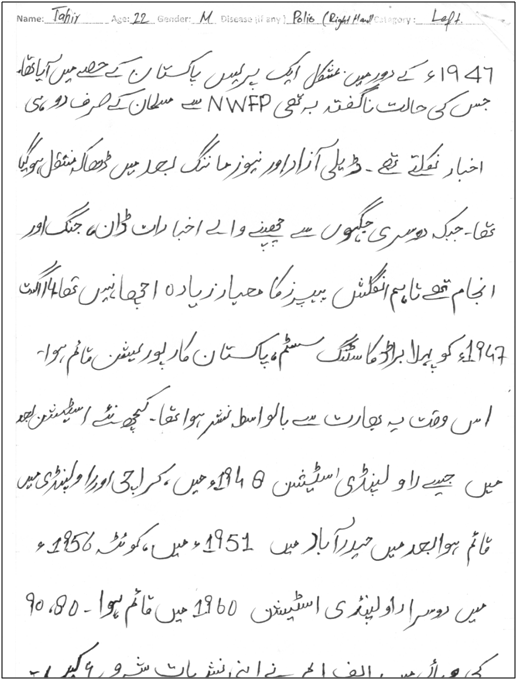 Name: Tahir Age: 22 Gender: M Disease (if any) Polio (Right Hand) Category: Left
1947ء کے دور میں بمشکل ایک پریس پاکستان کے حصے میں آیا تھا۔
جس کی حالت ناگفتہ بہ تھی NWFP سے مسلمان کے صرف دو ہی
اخبار نکلتے تھے۔ ڈیلی آزاد اور نیوز مارننگ بعد میں ڈھاکہ منتقل ہو گیا
تھا۔ جبکہ دوسری جگہوں سے چھپنے والے اخبارات ڈان، جنگ اور
انجام تھے تاہم انگلش پیپرز کا معیار زیادہ اچھا نہیں تھا۔ 14 اگست
1947ء کو پہلا براڈ کاسٹنگ سسٹم، پاکستان کارپوریشن قائم ہوا۔
اس وقت یہ بھارت سے بالواسطہ نشر ہوا تھا۔ کچھ نئے اسٹیشن بعد
میں جیسے راولپنڈی اسٹیشن 1948ء میں، کراچی اور راولپنڈی میں
قائم ہوا بعد میں حیدرآباد میں 1951ء میں، کوئٹہ 1956ء
میں دوسرا راولپنڈی اسٹیشن 1960 میں قائم ہوا۔ 80، 90